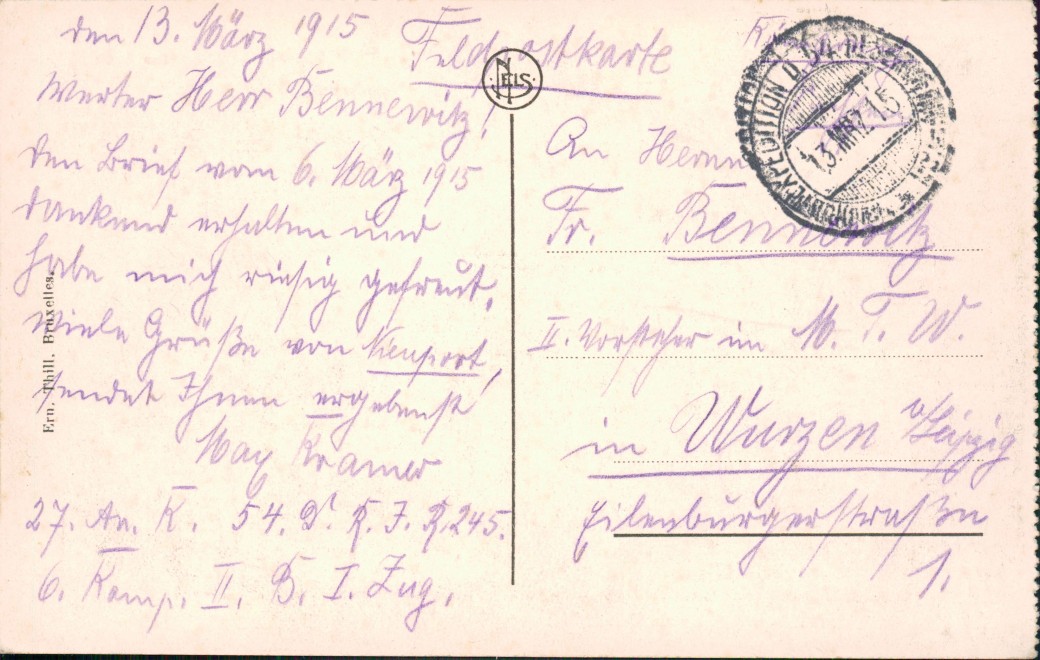 den 13. März 1915
Werter Herr Bennewitz!
Den Brief vom 6. März 1915
dankend erhalten und
habe mich riesig gefreut.
Viele Grüße von Nieuport,
sendet Ihnen ergebenst
Max Kramer
27. Ar. K. 54. D. R. I. R. 245.
6. Komp. II. B. I. Zug.
Ern. Thill, Bruxelles.
NELS
Feldpostkarte
13. MRZ. 15
An Herrn
Fr. Bennewitz
II. Vorsteher im M. T. W.
in Wurzen b/Leipzig
Eilenburgerstraße
1.